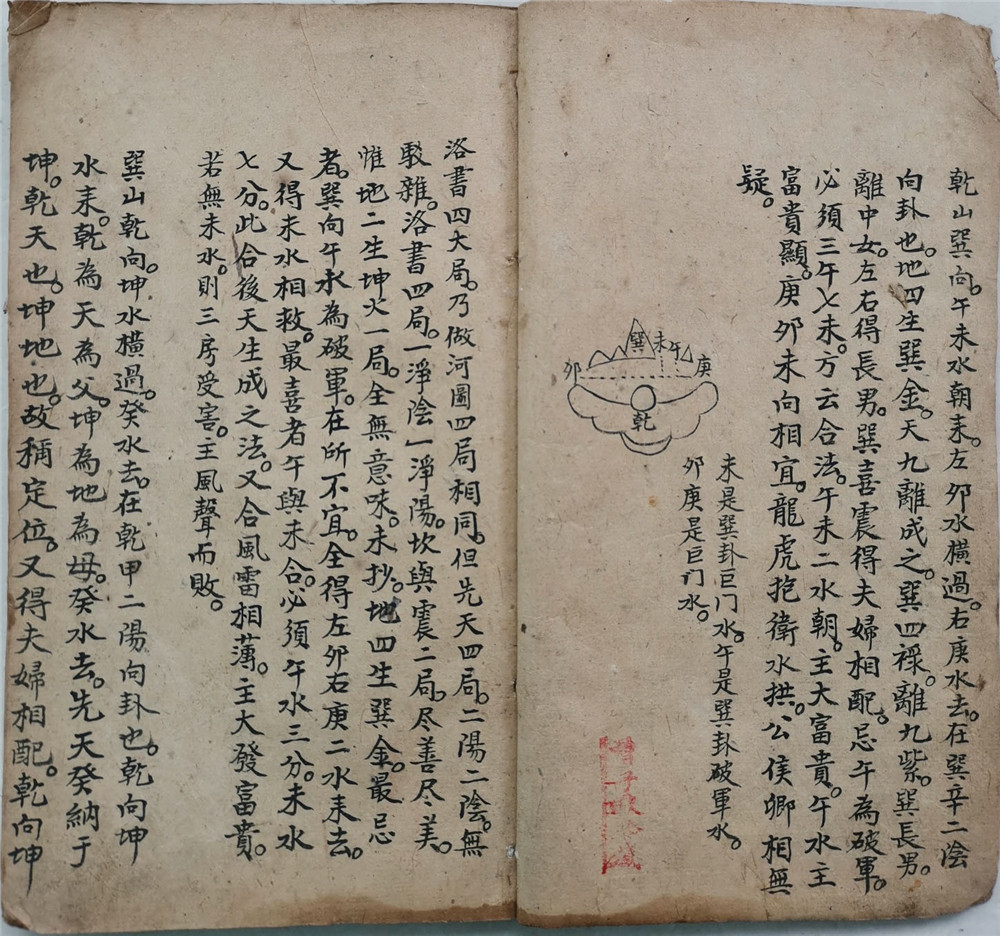 乾山巽向。午未水朝来。左卯水横過。右庚水去。在巽辛二陰
向卦也。地四生巽金。天九離成之。巽四禄。離九紫。巽長男。
離中女。左右得長男。巽喜震得夫婦相配。忌午為破軍。
必須三午七未。方云合法。午未二水朝。主大富貴。午水主
富貴顯。庚卯未向相宜。龍虎抱衛水拱。公侯卿相無
疑。
卯
巽
未
午
庚
乾
未是巽卦巨门水。午是巽卦破軍水。
卯庚是巨门水。
洛書四大局。乃做河圖四局相同。但先天四局。二陽二陰。無
駁雜。洛書四局。一淨陰一淨陽。坎與震二局。尽善尽美。
惟地二生坤火一局。全無意味。未抄。地四生巽金。最忌
者。巽向午水為破軍。在所不宜。全得左卯右庚二水来去。
又得未水相救。最喜者午與未合。必須午水三分。未水
七分。此合後天生成之法。又合風雷相薄。主大發富貴。
若無未水。則三房受害。主風聲而敗。
巽山乾向。坤水横過。癸水去。在乾甲二陽向卦也。乾向坤
水来。乾為天為父。坤為地為母。癸水去。先天癸納于
坤。乾天也。坤地也。故稱定位。又得夫婦相配。乾向坤